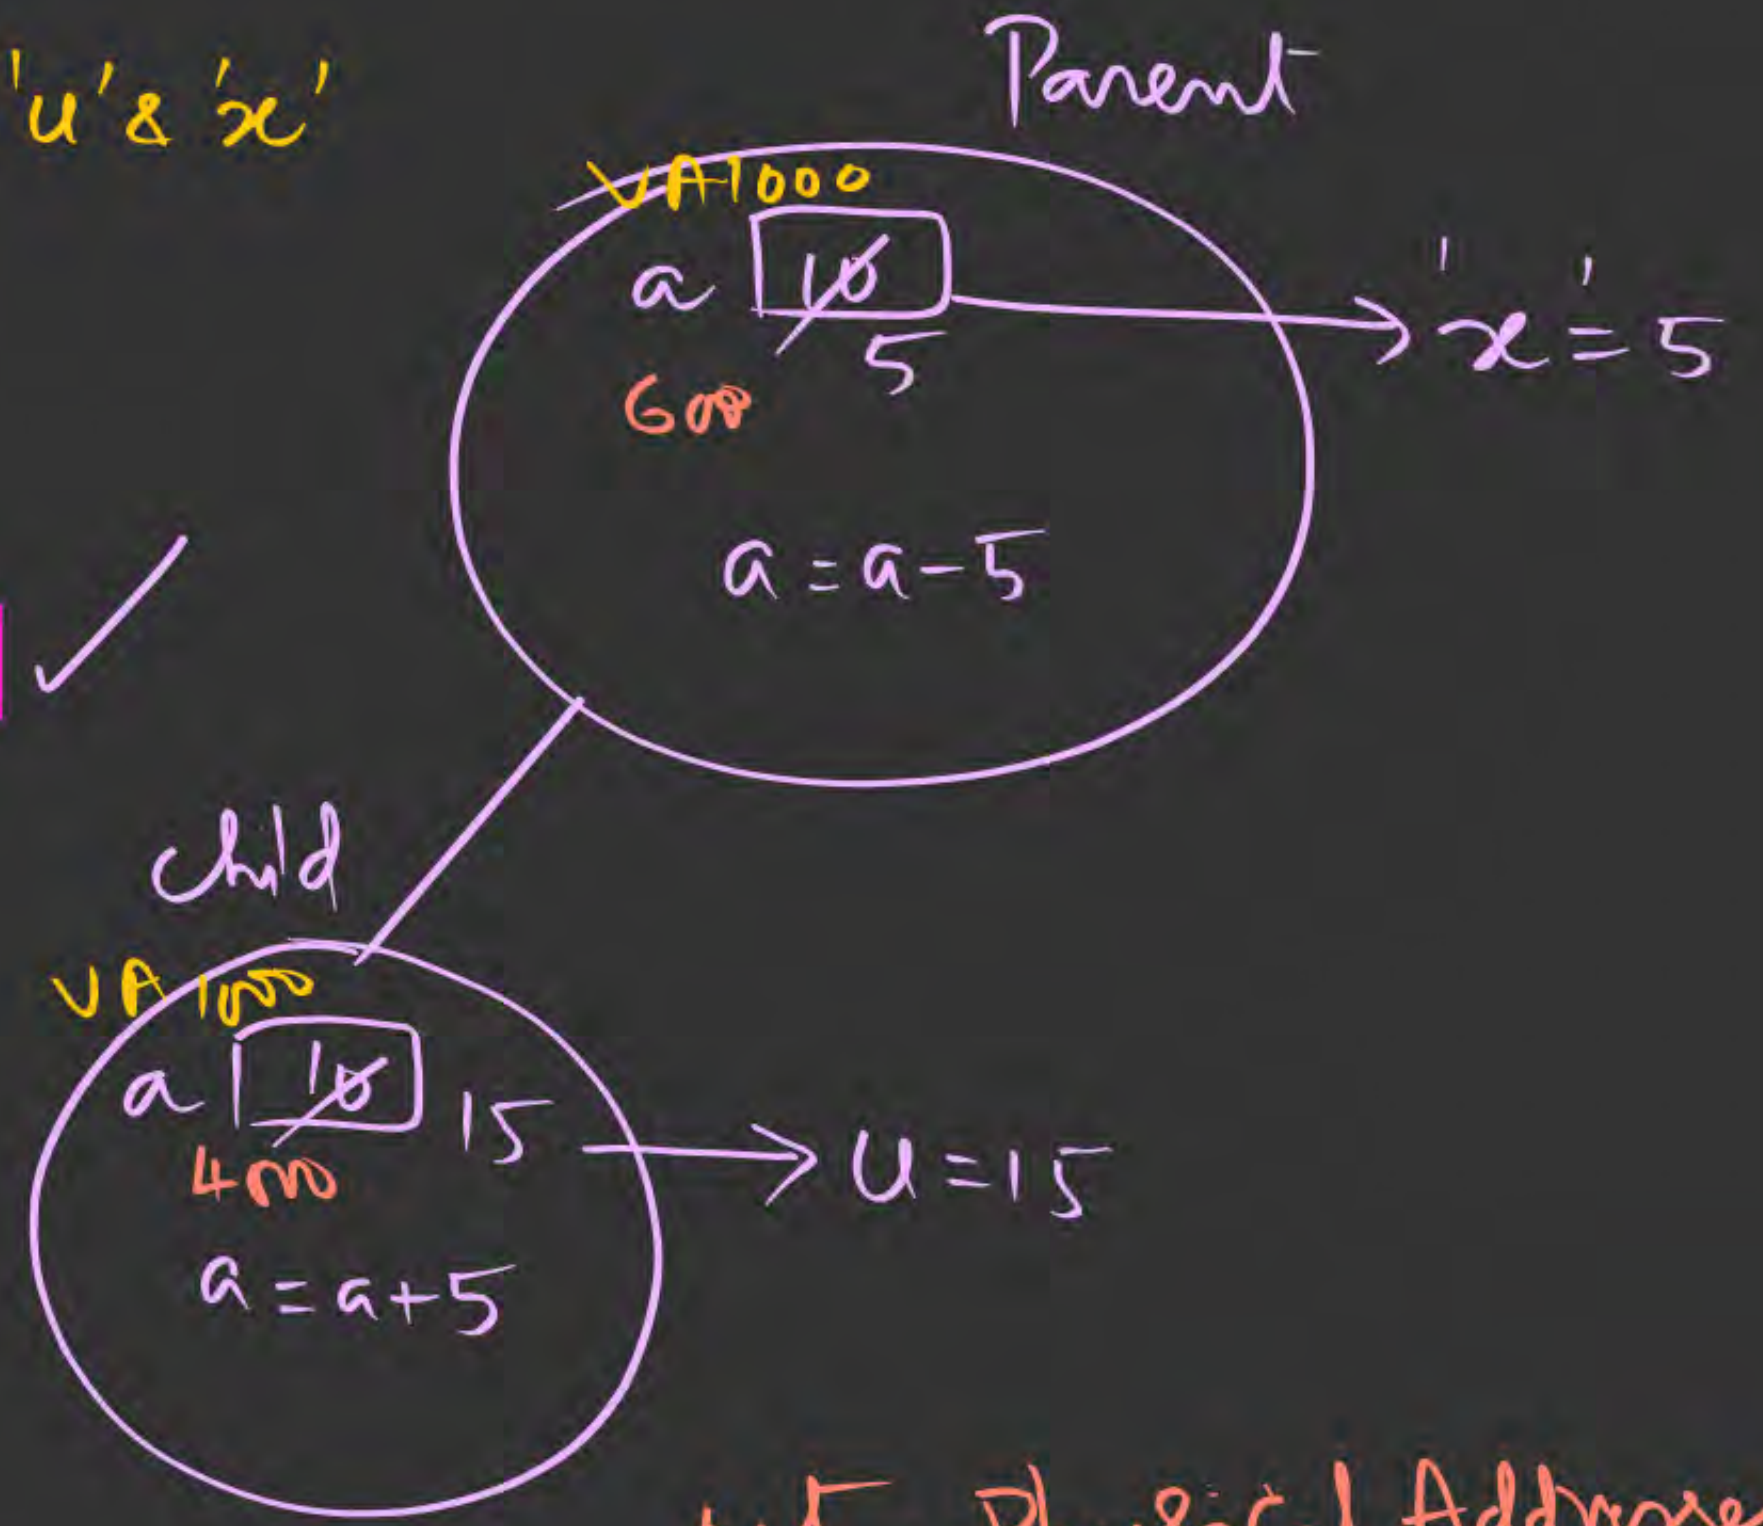 'u' & 'x'
Parent
VA1000
a 10
5
'x' = 5
600
a = a - 5
child
VA 1000
a 10 15
U = 15
400
a = a + 5
Physical Addresse